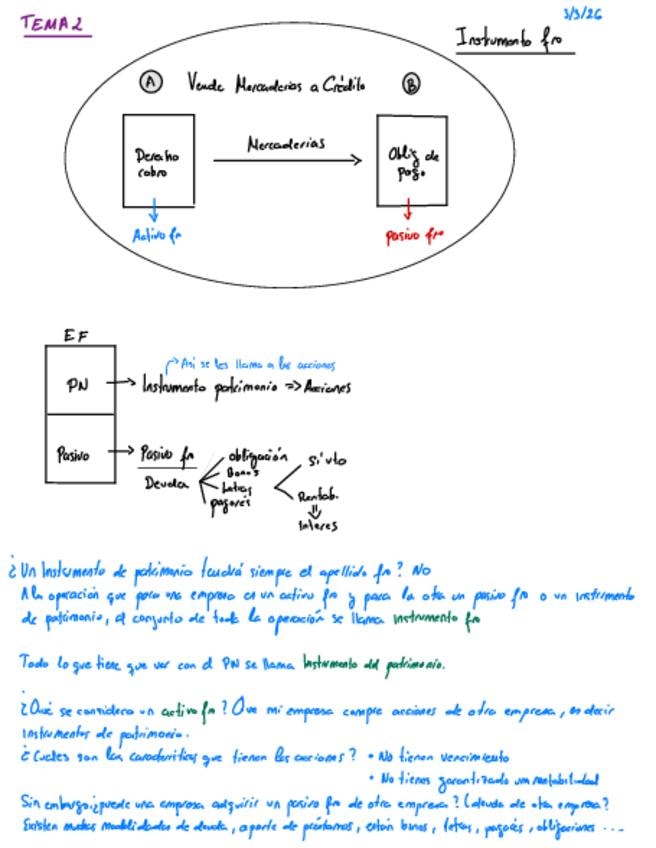 TEMA 2
3/3/26
Instrumento fro
A Vende Mercaderías a Crédito B
Derecho
cobro
Mercaderías
Oblig de
pago.
Activo fr
pasivo fro
EF
Así se les llama a las acciones
PN
Instrumento patrimonio => Acciones
Pasivo
Pasivo fn
Deuda
obligación
Bonos
Letras
pagarés
Si vto
Rentab.
Interes
¿Un Instrumento de patrimonio tendrá siempre el apellido fro? NO
A la operación que para una empresa es un activo fro y para la otra un pasivo fro o un instrumento
de patrimonio, al conjunto de toda la operación se llama instrumento fro
Todo lo que tiene que ver con el PN se llama Instrumento del patrimonio.
¿Qué se considera un activo fn? Que mi empresa compre acciones de otra empresa, es decir
instrumentos de patrimonio.
¿Cuales son las características que tienen las acciones? • No tienen vencimiento
• No tienes garantizado una rentabilidad
Sin embargo, ¿puede una empresa adquirir un pasivo fro de otra empresa? (deuda de otra empresa?
Existen muchas modalidades de deuda, aparte de préstamos, están bonos, letras, pagarés, obligaciones ...